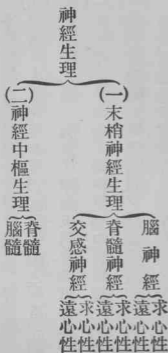 神經生理
(一)末梢神經生理
腦神經
求心性
遠心性
脊髓神經
求心性
遠心性
交感神經
求心性
遠心性
(二)神經中樞生理
脊髓
腦髓